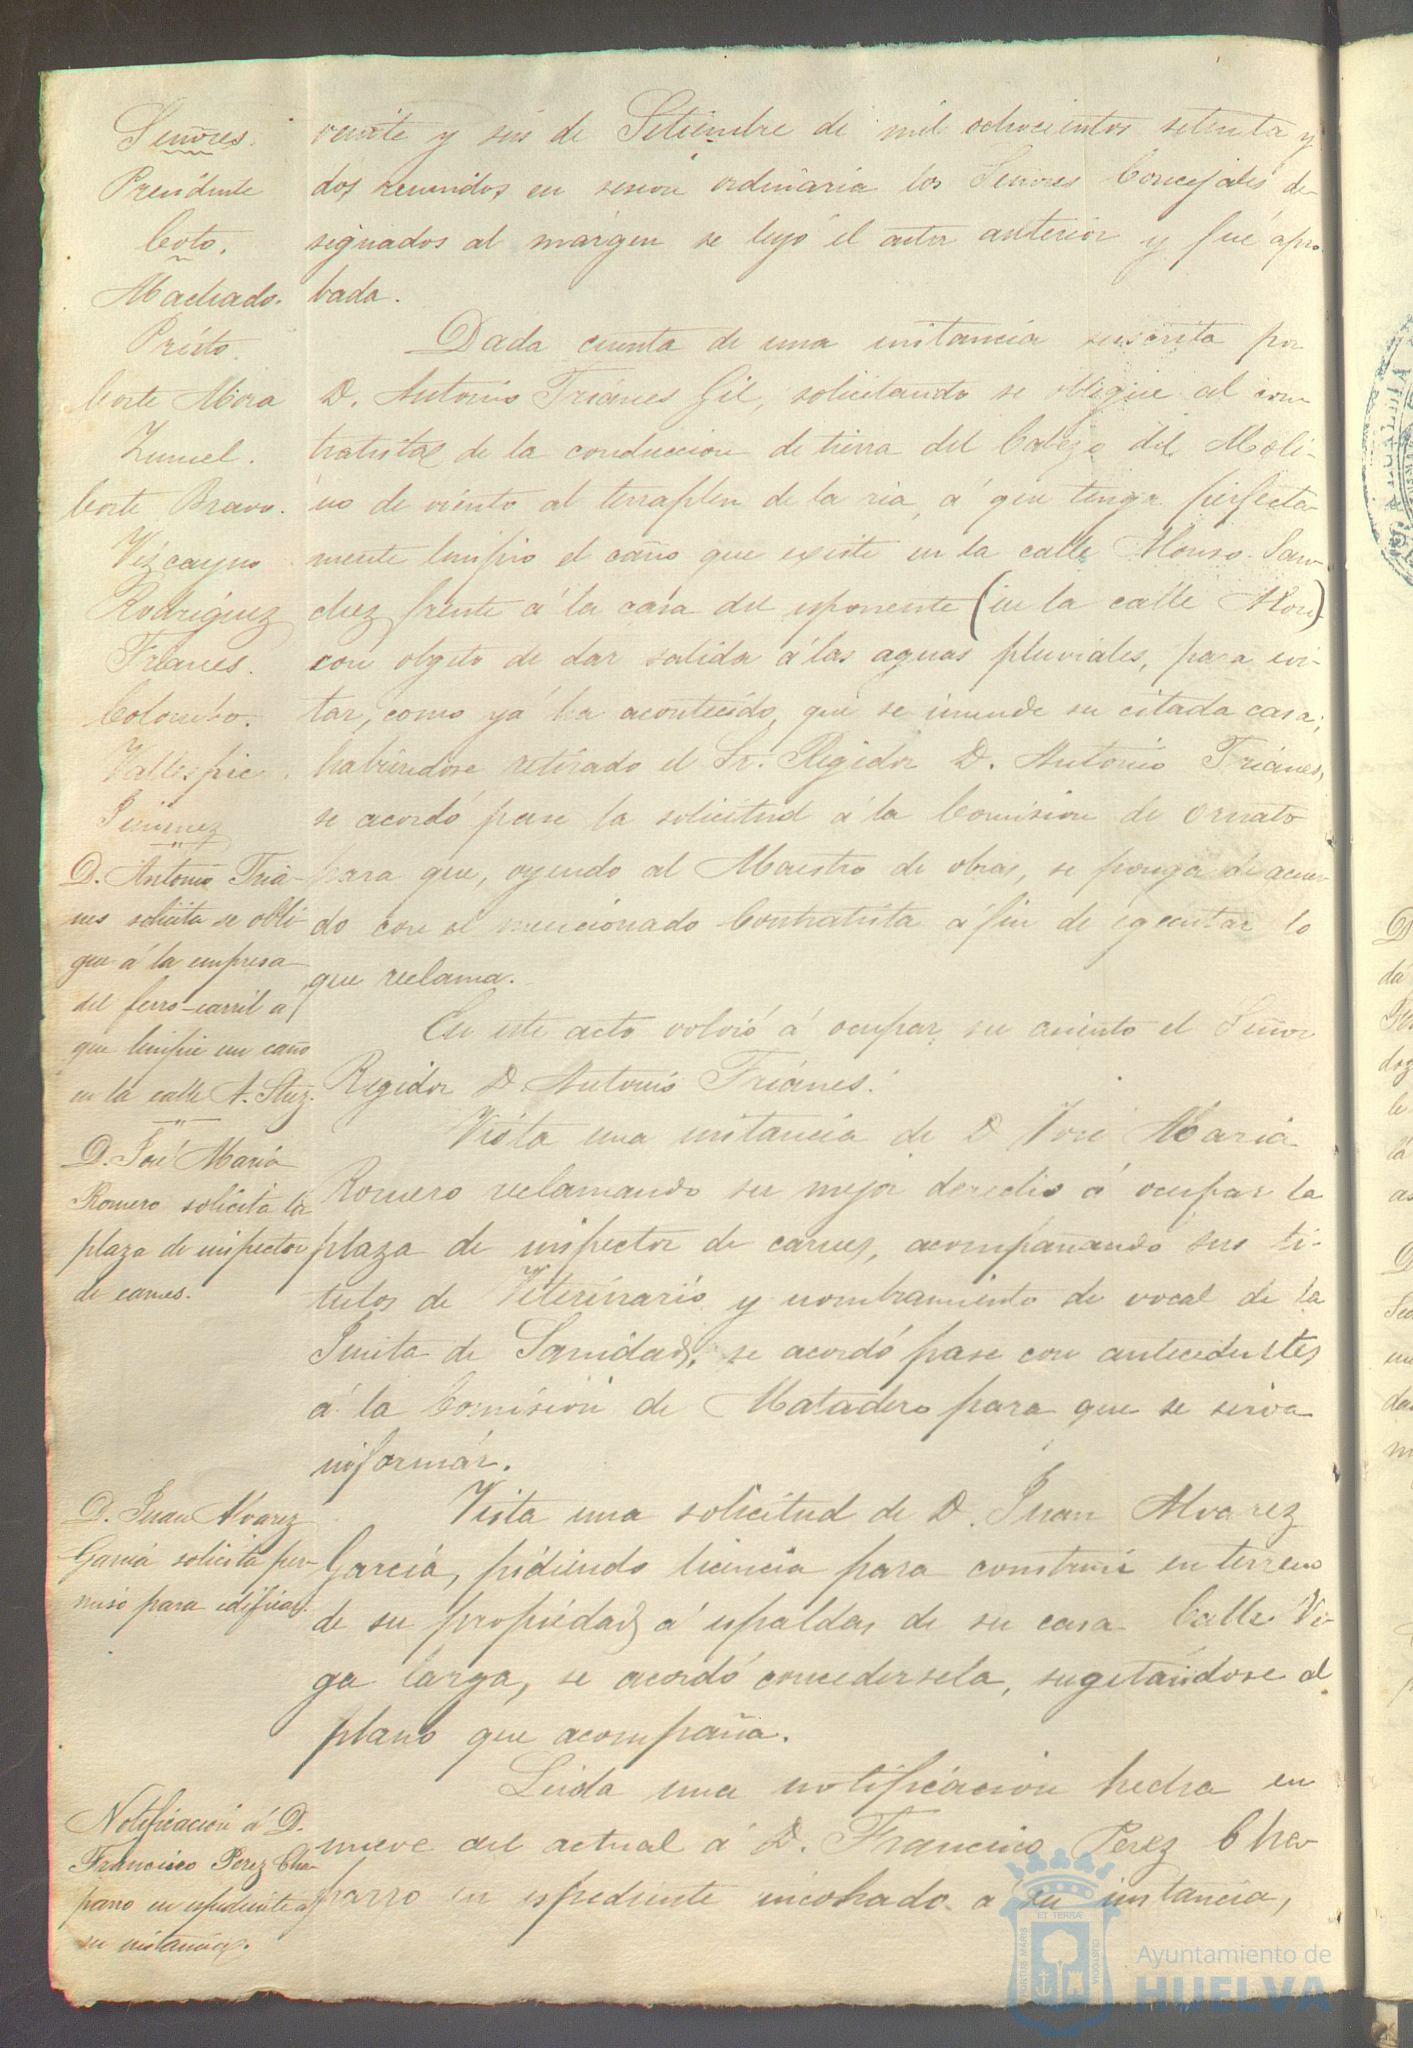 Señores.
Presidente
Coto.
Machado.
Prieto.
Corte Mora
Zunel.
Corte Bravo.
Vizcayno
Rodriguez
Trianes.
Colombo.
Jimenez
D. Antonio Tria-
nes solicita se obli-
gue á la empresa
del ferro-carril á
que limpie un caño
en la calle A. Shez.
D. José María
Romero solicita la
plaza de inspector
de carnes.
D. Juan Alvarez
Garcia solicita per-
miso para edificar.
Notificacion á D.
Francisco Perez Cha-
parro en espediente á
su instancia.
veinte y seis de Setiembre de mil ochocientos setenta y
dos, reunidos en sesion ordinaria los Señores Concejales de-
signados al márgen se leyó el acta anterior y fué apro-
bada.
Dada cuenta de una instancia suscrita por
D. Antonio Trianes Gil, solicitando se obligue al con-
tratista de la conduccion de tierra del Cabezo del Moli-
no de viento al terraplen de la ria, á que tenga perfecta-
mente limpio el caño que existe en la calle Alonso San-
chez frente á la casa del esponente (en la calle
con objeto de dar salida á las aguas pluviales, para evi-
tar, como yá ha acontecido, que se inunde su citada casa;
habiendose retirado el Sr. Regidor D. Antonio Trianes,
se acordó pase la solicitud á la Comision de Ornato
para que, oyendo al Maestro de obras, se ponga de acuer-
do con el mencionado Contratista á fin de egecutar lo
que reclama.
En este acto volvió á ocupar su asiento el Señor
Regidor D. Antonio Trianes.
Vista una instancia de D. José Maria
Romero reclamando su mejor derecho á ocupar la
plaza de inspector de carnes, acompañando sus ti-
tulos de Veterinario y nombramiento de vocal de la
Junta de Sanidad, se acordó pase con antecedentes
á la Comision de Matadero para que se sirva
informar.
Vista una solicitud de D. Juan Alvarez
Garcia, pidiendo licencia para construir en terreno
de su propiedad á espaldas de su casa Calle Ve-
ga larga, se acordó concedersela, sugetandose al
plano que acompaña.
Leida una notificacion hecha en
nueve del actual á D. Francisco Perez Cha-
parro en espediente incohado á su instancia,
Ayuntamiento de
HUELVA